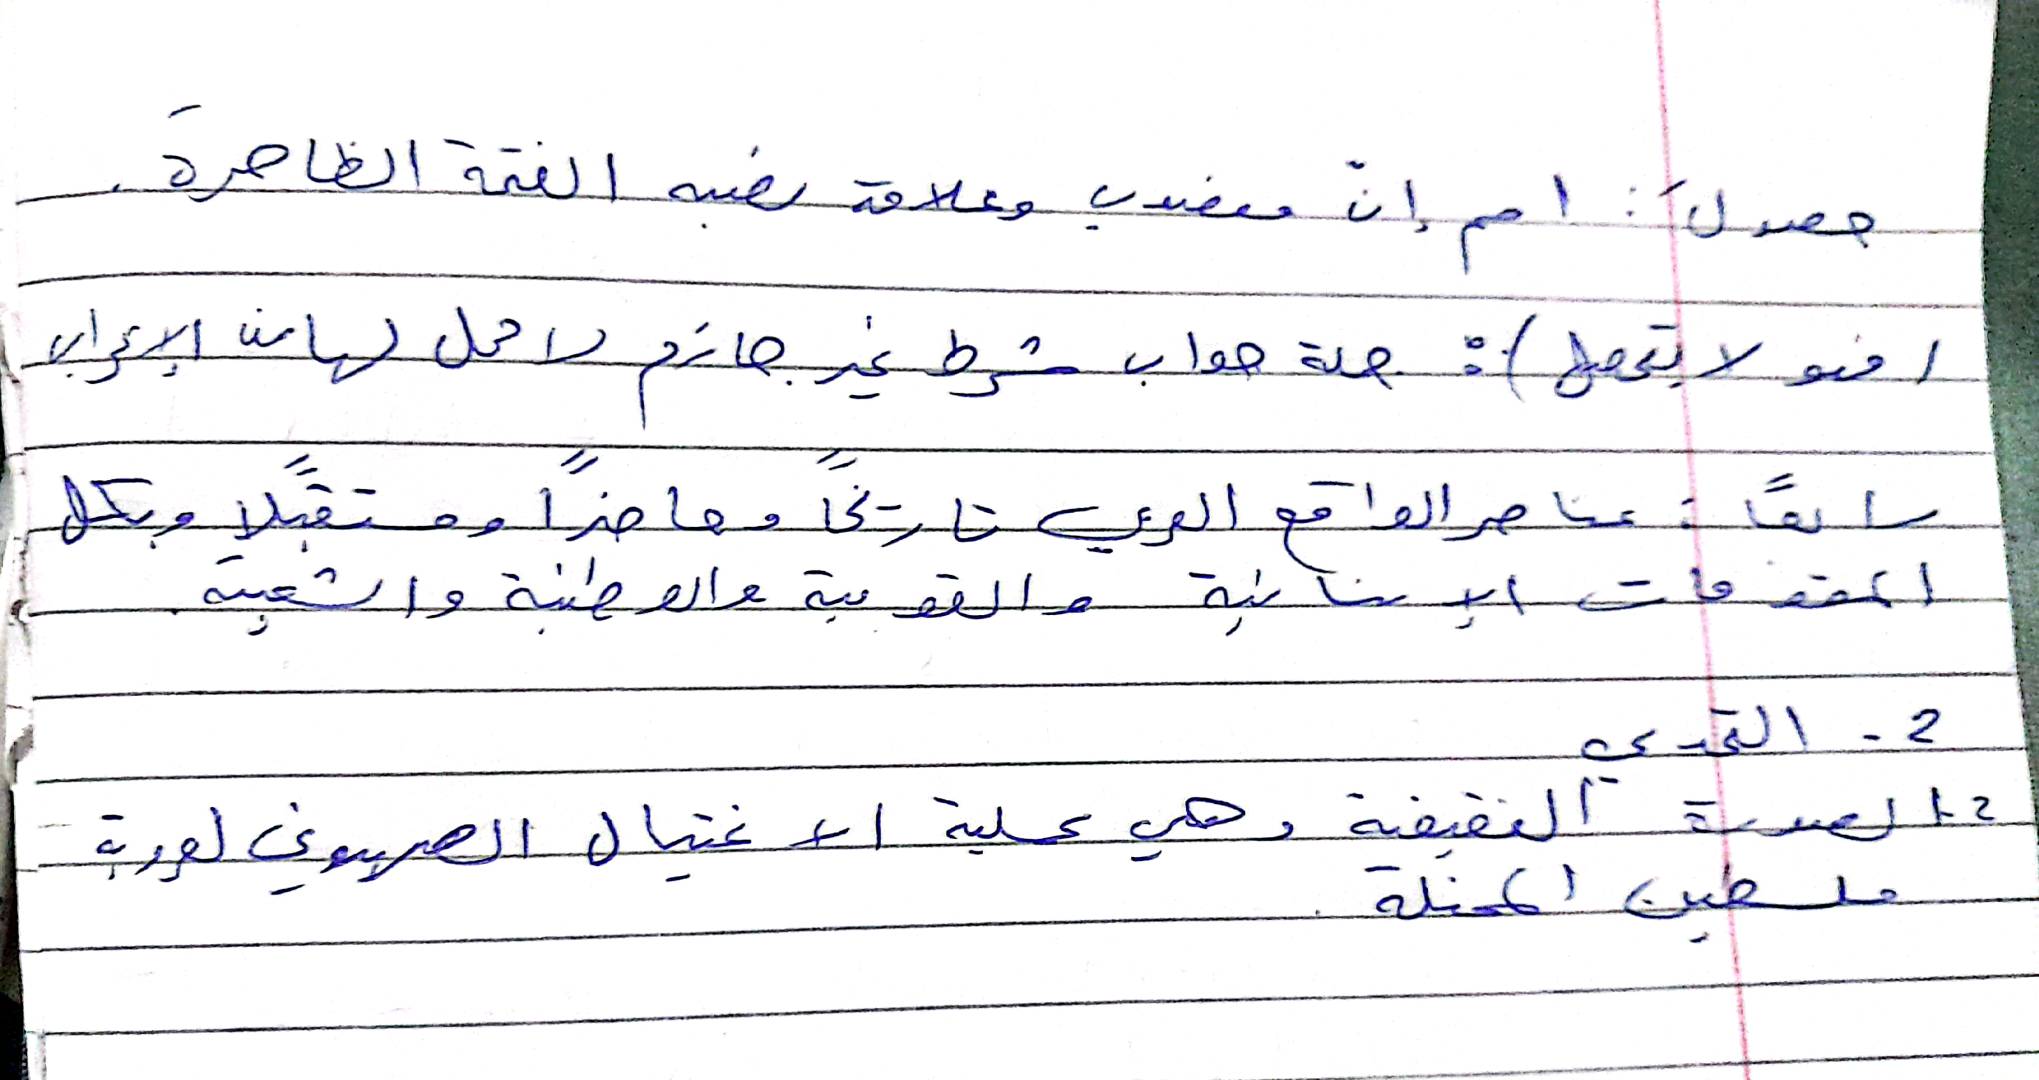 حصولَ: اسم إنّ منصوب وعلامة نصبه الفتحة الظاهرة.
(فهو لا يتحمل): جملة جواب شرط غير جازم لا محل لها من الإعراب
سابعًا: عناصر الواقع العربي تاريخًا وحاضرًا ومستقبلًا وبكل
المقومات الإنسانية والقومية والوطنية والشعبية.
2 - التحدي
2.1 الصدمة العنيفة وهي عملية الاغتيال الصهيوني لعروبة
فلسطين المحتلة.